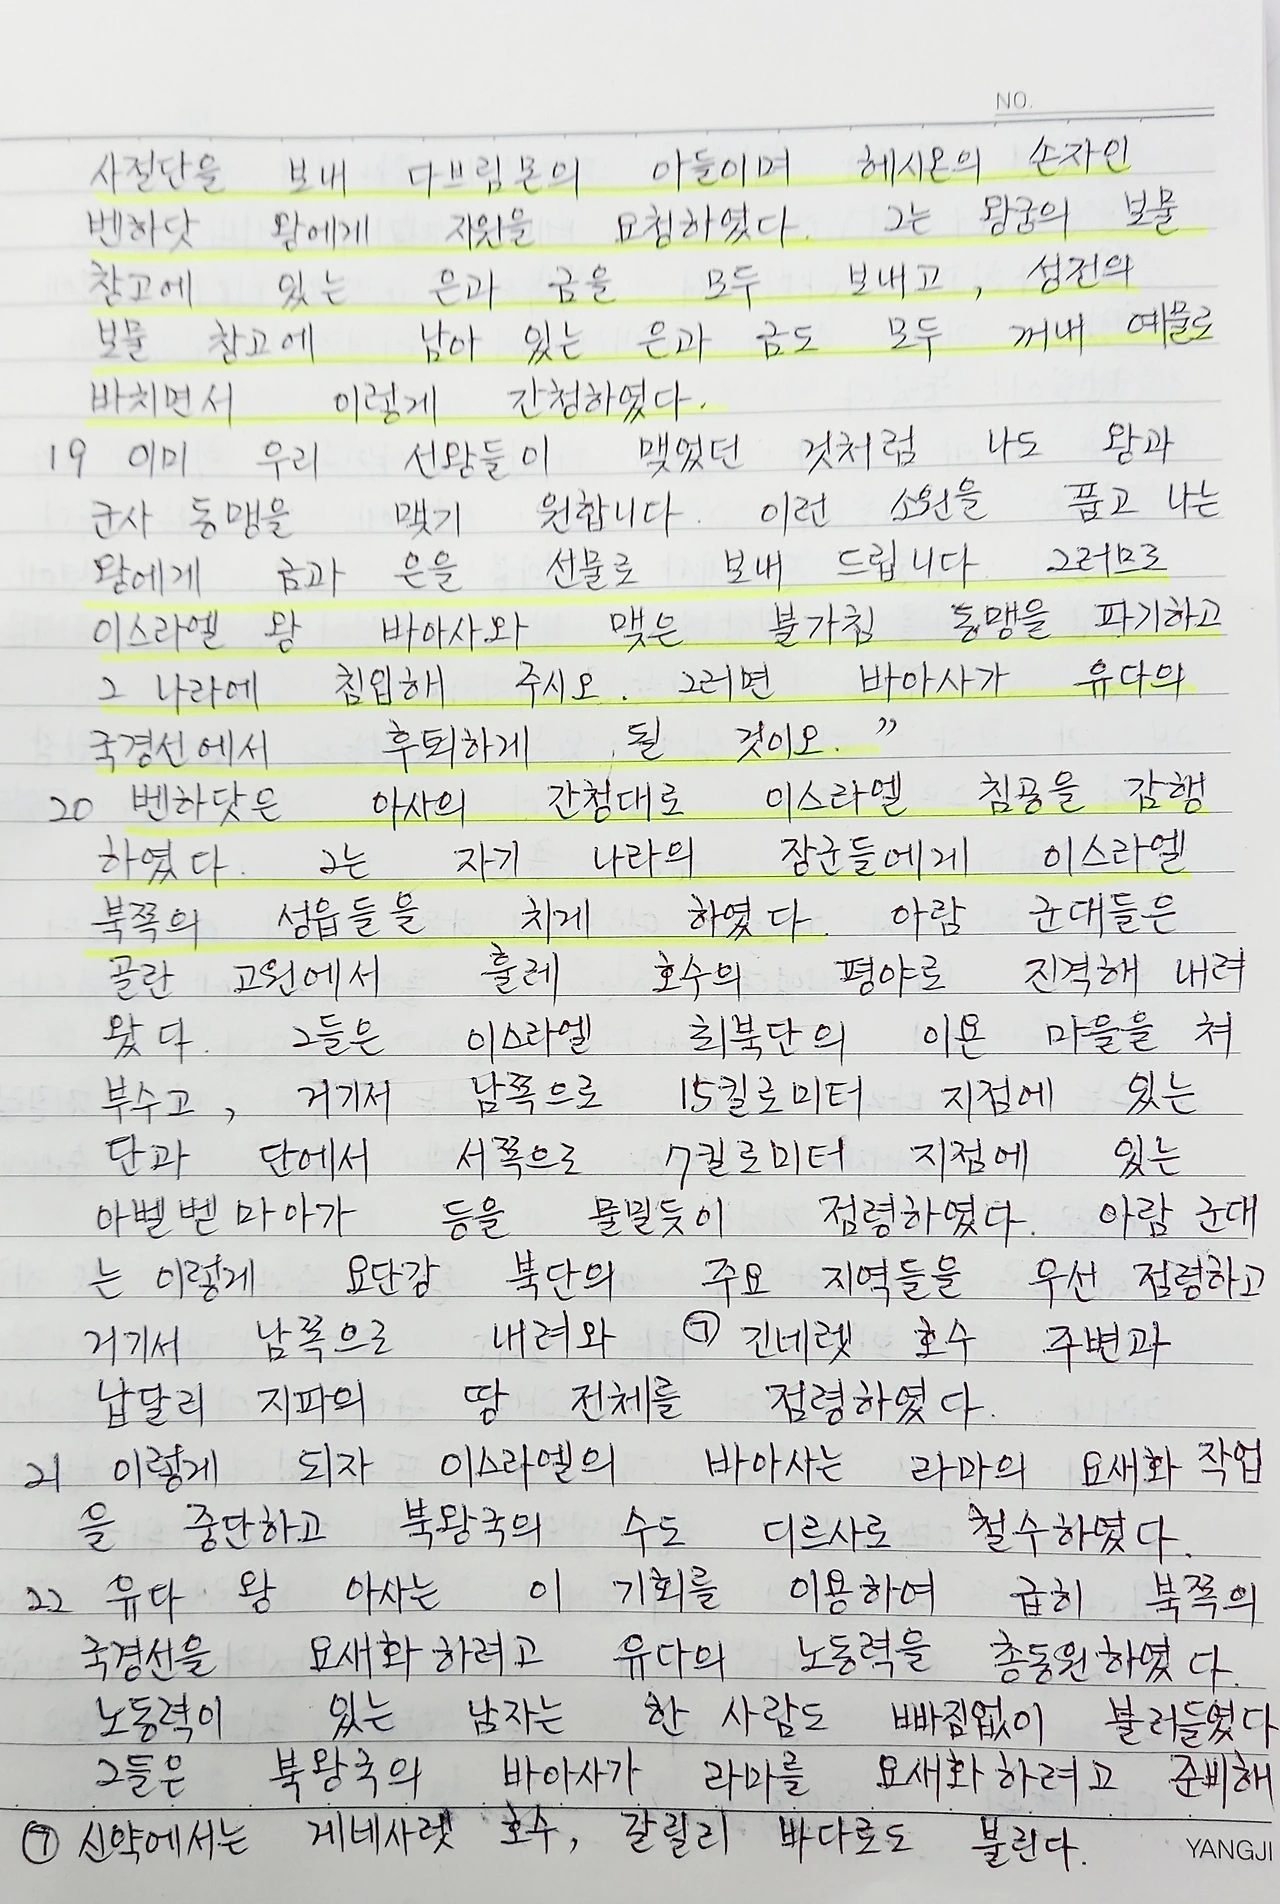 NO.
사절단을 보내 다브림몬의 아들이며 헤시온의 손자인
벤하닷 왕에게 지원을 요청하였다. 그는 왕궁의 보물
창고에 있는 은과 금을 모두 보내고, 성전의
보물 창고에 남아 있는 은과 금도 모두 꺼내 예물로
바치면서 이렇게 간청하였다.
19 이미 우리 선왕들이 맺었던 것처럼 나도 왕과
군사 동맹을 맺기 원합니다. 이런 소원을 품고 나는
왕에게 금과 은을 선물로 보내 드립니다. 그러므로
이스라엘 왕 바아사와 맺은 불가침 동맹을 파기하고
그 나라에 침입해 주시오. 그러면 바아사가 유다의
국경선에서 후퇴하게 될 것이오."
20 벤하닷은 아사의 간청대로 이스라엘 침공을 감행
하였다. 그는 자기 나라의 장군들에게 이스라엘
북쪽의 성읍들을 치게 하였다. 아람 군대들은
골란 고원에서 훌레 호수의 평야로 진격해 내려
왔다. 그들은 이스라엘 최북단의 이욘 마을을 쳐
부수고, 거기저 남쪽으로 15킬로미터 지점에 있는
단과 단에서 서쪽으로 7킬로미터 지점에 있는
아벨벧마아가 등을 물밀듯이 점령하였다. 아람 군대
는 이렇게 요단강 북단의 주요 지역들을 우선 점령하고
거기서 남쪽으로 내려와 ㉦ 긴네렛 호수 주변과
납달리 지파의 땅 전체를 점령하였다.
21 이렇게 되자 이스라엘의 바아사는 라마의 요새화 작업
을 중단하고 북왕국의 수도 디르사로 철수하였다.
22 유다 왕 아사는 이 기회를 이용하여 급히 북쪽의
국경선을 요새화하려고 유다의 노동력을 총동원하였다.
노동력이 있는 남자는 한 사람도 빠짐없이 불러들였다
그들은 북왕국의 바아사가 라마를 요새화하려고 준비해
㉦ 신약에서는 게네사렛 호수, 갈릴리 바다로도 불린다.
YANGJI